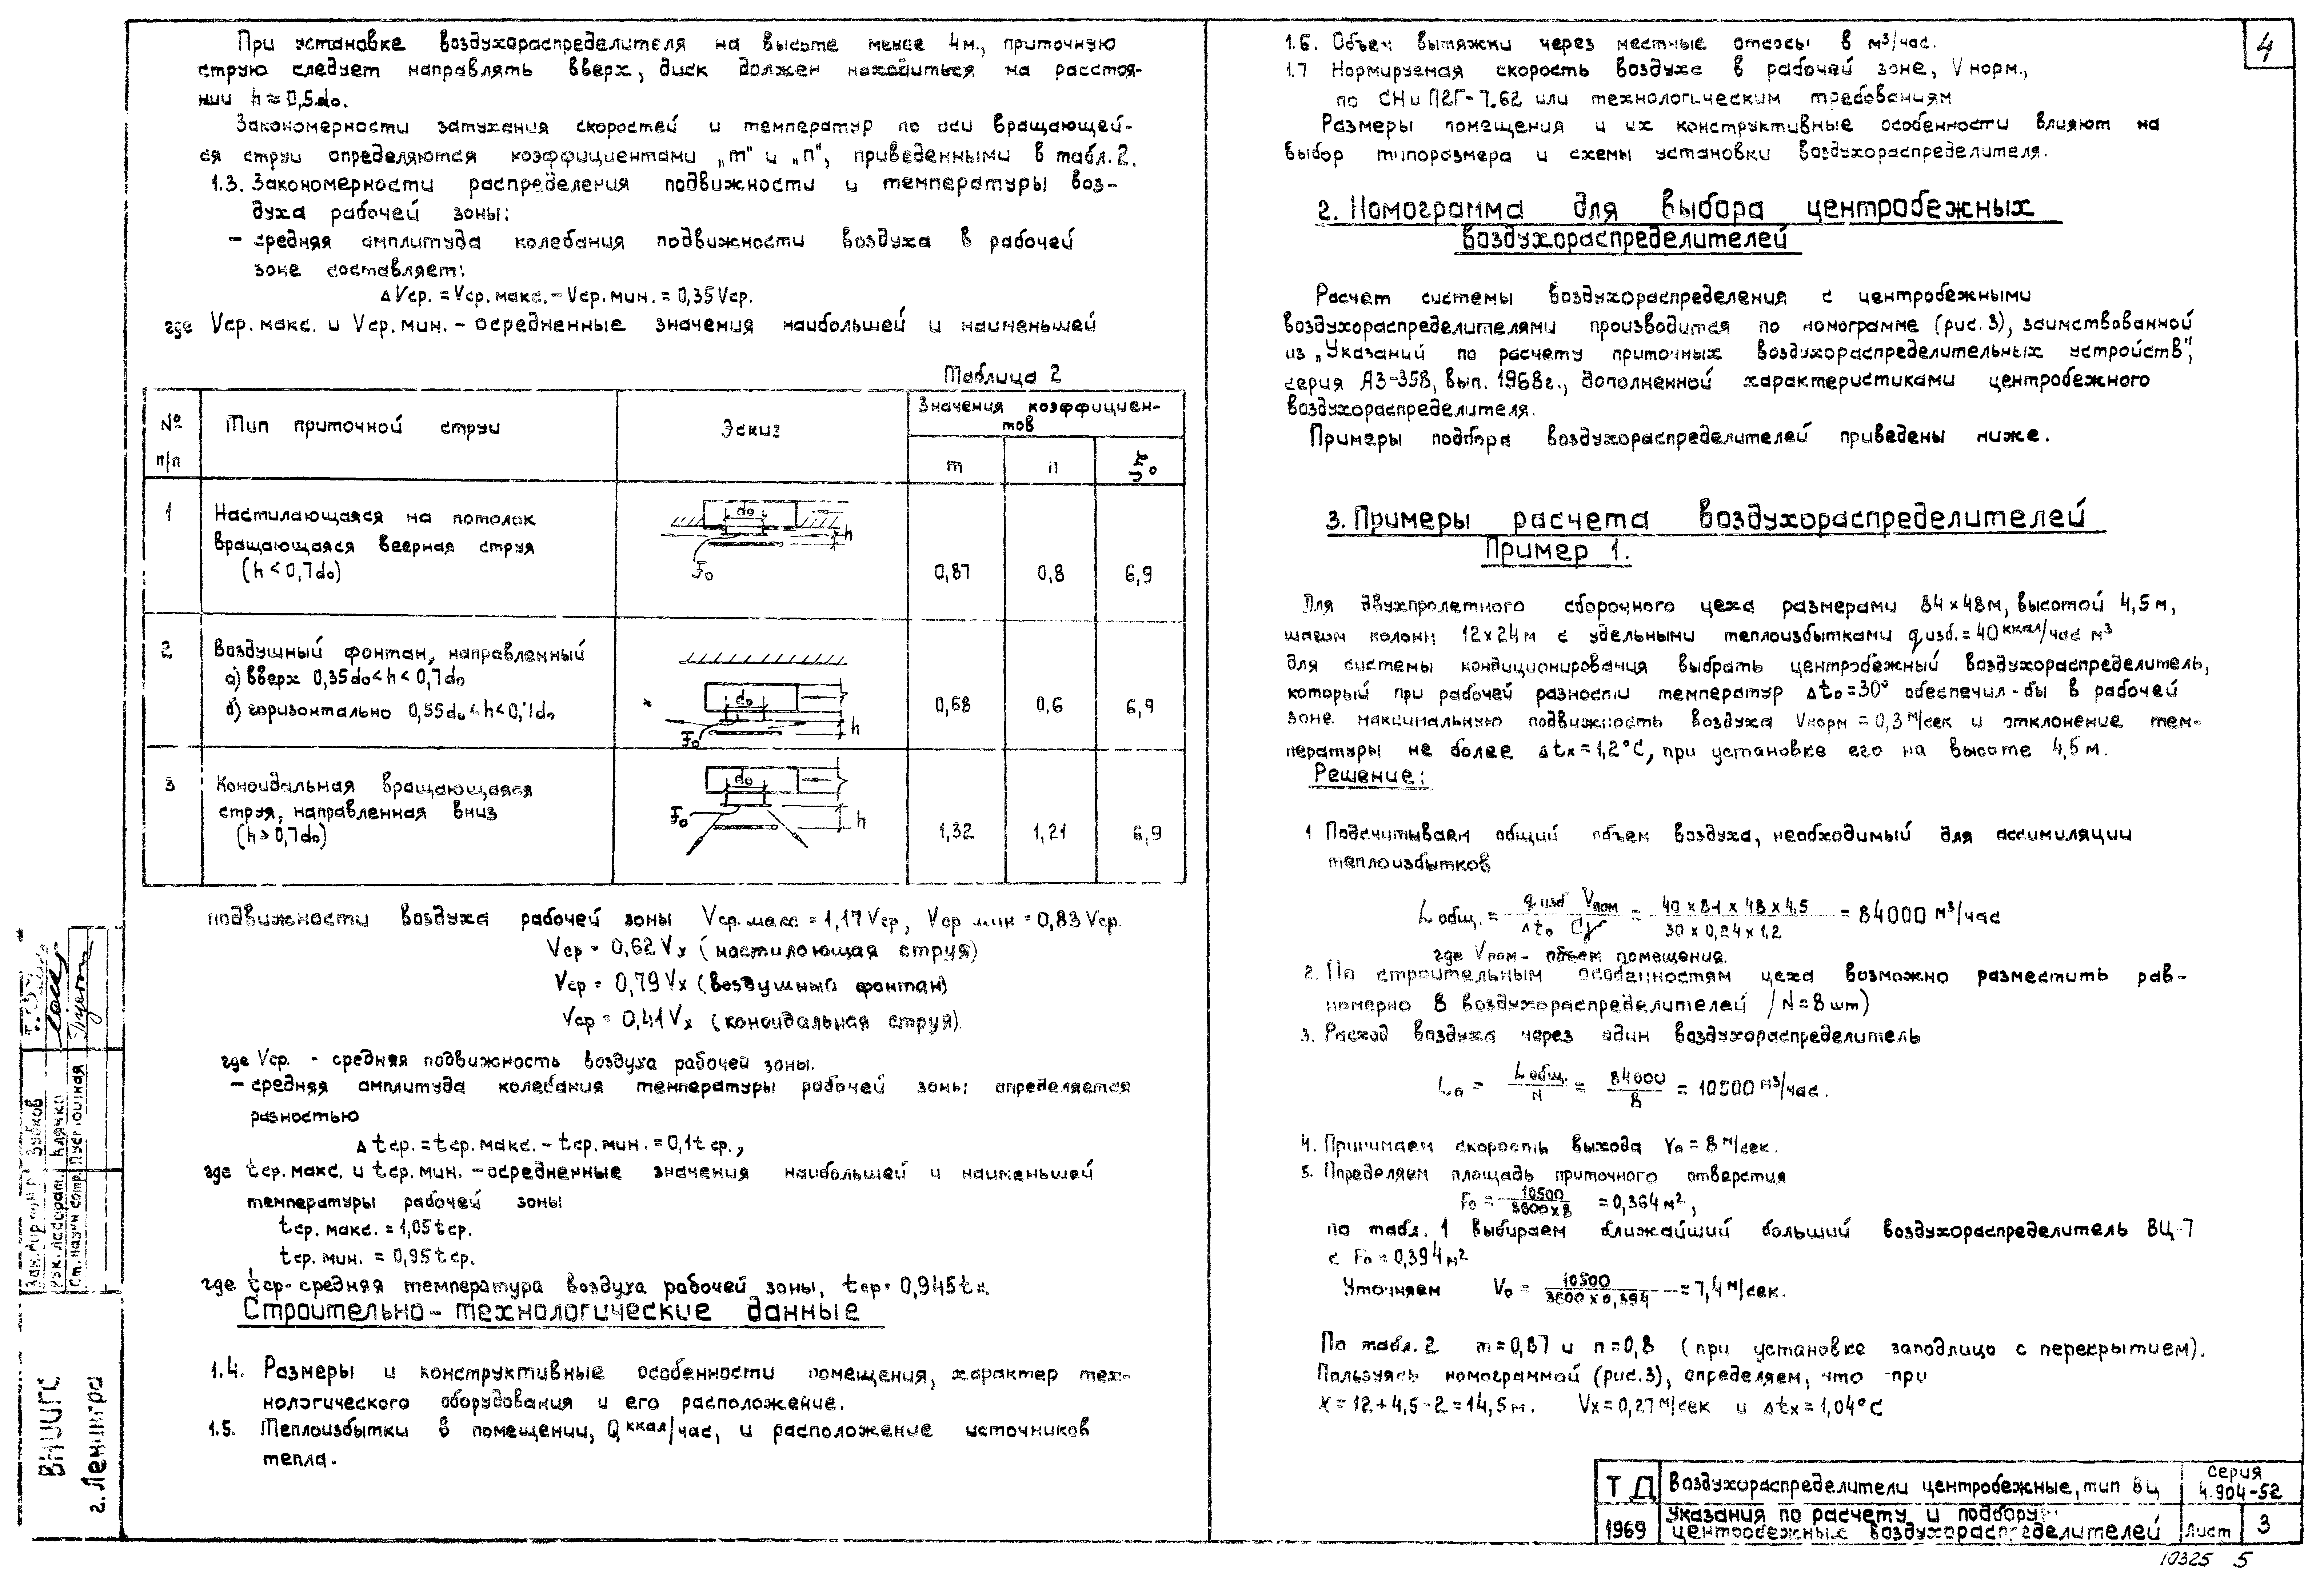 4
При установке воздухораспределителя на высоте менее 4м., приточную
струю следует направлять вверх, диск должен находиться на расстоя-
нии h ≈ 0,5do.
Закономерности затухания скоростей и температур по оси вращающей-
ся струи определяются коэффициентами „m" и „n", приведенными в табл. 2.
1.3. Закономерности распределения подвижности и температуры воз-
духа рабочей зоны:
- средняя амплитуда колебания подвижности воздуха в рабочей
зоне составляет:
ΔVср. = Vср. макс. - Vср. мин. = 0,35 Vср.
где Vср. макс. и Vср. мин. - осредненные значения наибольшей и наименьшей
Таблица 2
№ п/п | Тип приточной струи | Эскиз | Значения коэффициен-
тов
m | n | ξo
1 | Настилающаяся на потолок
вращающаяся веерная струя
(h < 0,7do)
do h Fo
0,87 | 0,8 | 6,9
2 | Воздушный фонтан, направленный
а) вверх 0,35do < h < 0,7do
б) горизонтально 0,55do < h < 0,7do
do h Fo
0,68 | 0,6 | 6,9
3 | Коноидальная вращающаяся
струя, направленная вниз
(h > 0,7do)
do h Fo
1,32 | 1,21 | 6,9
подвижности воздуха рабочей зоны Vср. макс = 1,17 Vср, Vср мин = 0,83 Vср.
Vср = 0,62 Vx (настилающая струя)
Vср = 0,79 Vx (воздушный фонтан)
Vср = 0,41 Vx (коноидальная струя).
где Vср. - средняя подвижность воздуха рабочей зоны.
- средняя амплитуда колебания температуры рабочей зоны определяется
разностью
Δtср. = tср. макс. - tср. мин. = 0,1 tср.,
где tср. макс. и tср. мин. - осредненные значения наибольшей и наименьшей
температуры рабочей зоны
tср. макс. = 1,05 tср.
tср. мин. = 0,95 tср.
где tср - средняя температура воздуха рабочей зоны, tср = 0,945 tx.
Строительно-технологические данные
1.4. Размеры и конструктивные особенности помещения, характер тех-
нологического оборудования и его расположение.
1.5. Теплоизбытки в помещении, Q ккал/час, и расположение источников
тепла.
1.6. Объем вытяжки через местные отсосы в м³/час.
1.7 Нормируемая скорость воздуха в рабочей зоне, V норм.,
по СНиП2Г-7.62 или технологическим требованиям
Размеры помещения и их конструктивные особенности влияют на
выбор типоразмера и схемы установки воздухораспределителя.
2. Номограмма для выбора центробежных
воздухораспределителей
Расчет системы воздухораспределения с центробежными
воздухораспределителями производится по номограмме (рис. 3), заимствованной
из „Указаний по расчету приточных воздухораспределительных устройств",
серия А3-358, вып. 1968г., дополненной характеристиками центробежного
воздухораспределителя.
Примеры подбора воздухораспределителей приведены ниже.
3. Примеры расчета воздухораспределителей
Пример 1.
Для двухпролетного сборочного цеха размерами 84×48м, высотой 4,5 м,
шагом колонн 12×24м с удельными теплоизбытками qизб. = 40 ккал/час м³
для системы кондиционирования выбрать центробежный воздухораспределитель,
который при рабочей разности температур Δto = 30° обеспечил-бы в рабочей
зоне максимальную подвижность воздуха Vнорм = 0,3 м/сек и отклонение тем-
пературы не более Δtx = 1,2°С, при установке его на высоте 4,5 м.
Решение:
1 Подсчитываем общий объем воздуха, необходимый для ассимиляции
теплоизбытков
L общ. = qизб Vпом / Δto Cγ = 40 × 84 × 48 × 4,5 / 30 × 0,24 × 1,2 = 84000 м³/час
где Vпом - объем помещения.
2. По строительным особенностям цеха возможно разместить рав-
номерно 8 воздухораспределителей /N = 8 шт)
3. Расход воздуха через один воздухораспределитель
Lo = L общ. / N = 84000 / 8 = 10500 м³/час.
4. Принимаем скорость выхода Vo = 8 м/сек.
5. Определяем площадь приточного отверстия
Fo = 10500 / 3600 × 8 = 0,364 м²,
по табл. 1 выбираем ближайший больший воздухораспределитель ВЦ-7
с Fo = 0,394 м².
Уточняем Vo = 10500 / 3600 × 0,394 = 7,4 м/сек.
По табл. 2 m = 0,87 и n = 0,8 (при установке заподлицо с перекрытием).
Пользуясь номограммой (рис. 3), определяем, что при
X = 12 + 4,5 - 2 = 14,5 м. Vx = 0,27 м/сек и Δtx = 1,04°С
Рук. лаборат. Клячко
Ст. научн сотр.
Зубков
ВНИИГС
г. Ленинград
ТД | Воздухораспределители центробежные, тип ВЦ | серия
4.904-52
1969 | Указания по расчету и подбору
центробежных воздухораспределителей | Лист | 3
10325 5